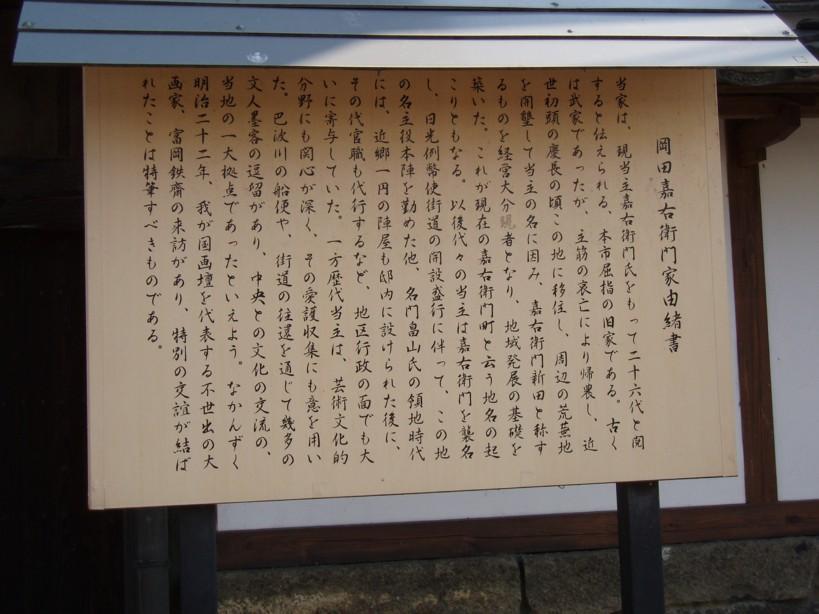 岡田嘉右衛門家由緒書
当家は、現当主嘉右衛門氏をもって二十六代と関
すると伝えられる、本市屈指の旧家である。古く
は武家であったが、主筋の哀亡により帰農し、近
世初頭の慶長の頃この地に移住し、周辺の荒蕪地
を開墾して当主の名に因み、嘉右衛門新田と称す
るものを経営大分現者となり、地域発展の基礎を
築いた。これが現在の嘉右衛門町と云う地名の起
こりともなる。以後代々の当主は嘉右衛門を襲名
し、日光例幣使街道の開設盛行に伴って、この地
の名主役本陣を勤めた他、名門畠山氏の領地時代
には、近郷一円の陣屋も邸内に設けられた後に、
その代官職も代行するなど、地区行政の面でも大
いに寄与していた。一方歴代当主は、芸術文化的
分野にも関心が深く、その愛護収集にも意を用い
た。巴波川の船便や、街道の往還を通じて幾多の
文人墨客の逗留があり、中央との文化の交流の、
当地の一大拠点であったといえよう。なかんずく
明治二十二年、我が国画壇を代表する不世出の大
画家、富岡鉄齋の来訪があり、特別の交誼が結ば
れたことは特筆すべきものである。